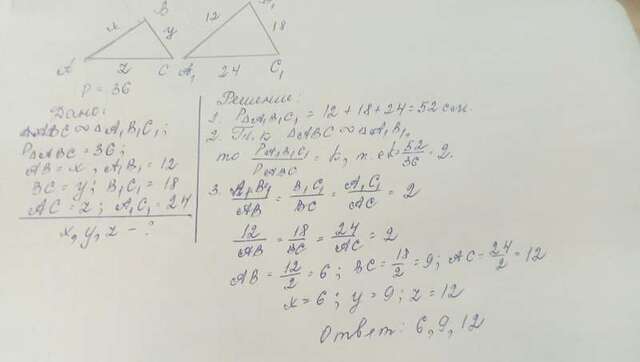 x B y
A z C
12 B₁ 18
A₁ 24 C₁
P = 36
Дано:
ΔABC ∾ ΔA₁B₁C₁;
PΔABC = 36;
AB = x, A₁B₁ = 12
BC = y; B₁C₁ = 18
AC = z; A₁C₁ = 24
x, y, z - ?
Решение:
1. PΔA₁B₁C₁ = 12 + 18 + 24 = 52 см.
2. Т.к ΔABC ∾ ΔA₁B₁
то PA₁B₁C₁/PABC = k, т.е 52/36 = 2.
3. A₁B₁/AB = B₁C₁/BC = A₁C₁/AC = 2
12/AB = 18/BC = 24/AC = 2
AB = 12/2 = 6; BC = 18/2 = 9; AC = 24/2 = 12
x = 6; y = 9; z = 12
Ответ: 6, 9, 12